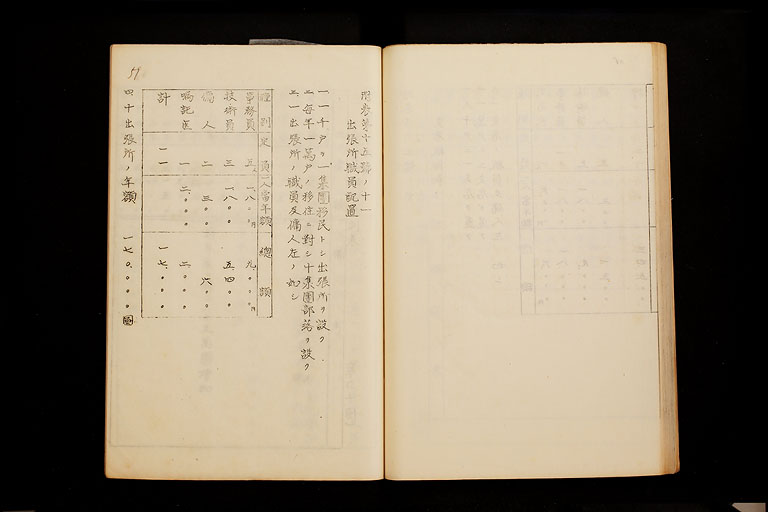 附表第十五號ノ十一
出張所職員配置
一、一千戸ヲ一集團移民トシ出張所ヲ設ク
二、每年一萬戸ノ移住ニ對シ十集團部落ヲ設ク
三、一出張所ノ職員及傭人左ノ如シ
種別 定員 一人當年額 總額
事務員 五人 一、八〇〇円 九、〇〇〇円
技術員 三 一、八〇〇 五、四〇〇
傭人 二 三〇〇 六〇〇
囑託医 一 二、〇〇〇 二、〇〇〇
計 一一 一七、〇〇〇
四十出張所ノ年額 一七〇、〇〇〇圓
51